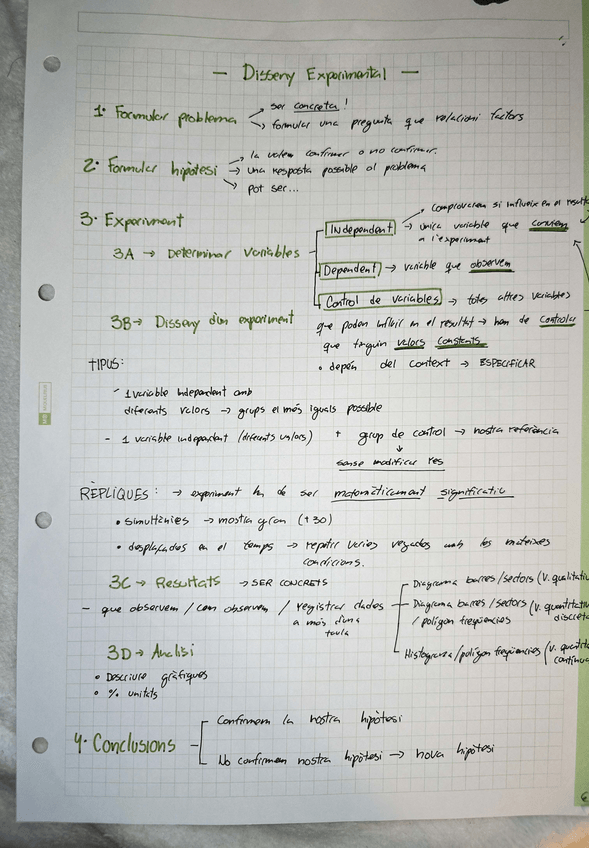 — Disseny Experimental —
1. Formular problema → ser concreta!
→ formular una pregunta que relacioni factors
2. Formular hipòtesi → la volem confirmar o no confirmar.
→ una resposta possible al problema
→ pot ser...
3. Experiment
3A → Determinar variables
Independent → Comprovarem si influeix en el
→ única variable que canviem
a l'experiment
Dependent → variable que observem
Control de variables → totes altres variables
que poden influir en el resultat → han de controlar
que tinguin valors constants
• depèn del context → ESPECIFICAR
3B → Disseny d'un experiment
TIPUS:
- 1 variable independent amb
diferents valors → grups el més iguals possible
- 1 variable independent (diferents valors) + grup de control → nostra referència
↓
sense modificar res
RÈPLIQUES: → experiment ha de ser matemàticament significatiu
• simultànies → mostra gran (+30)
• desplaçades en el temps → repetir varies vegades amb les mateixes
condicions.
3C → Resultats → SER CONCRETS
- que observem / com observem / registrar dades
a més d'una
taula
Diagrama barres/sectors (v.
Diagrama barres/sectors (v.
/ polígon freqüències
Histograma/polígon freqüències (v.
3D → Anàlisi
• Descriure gràfiques
• % unitats
4. Conclusions
Confirmem la nostra hipòtesi
No confirmem nostra hipòtesi → nova hipòtesi